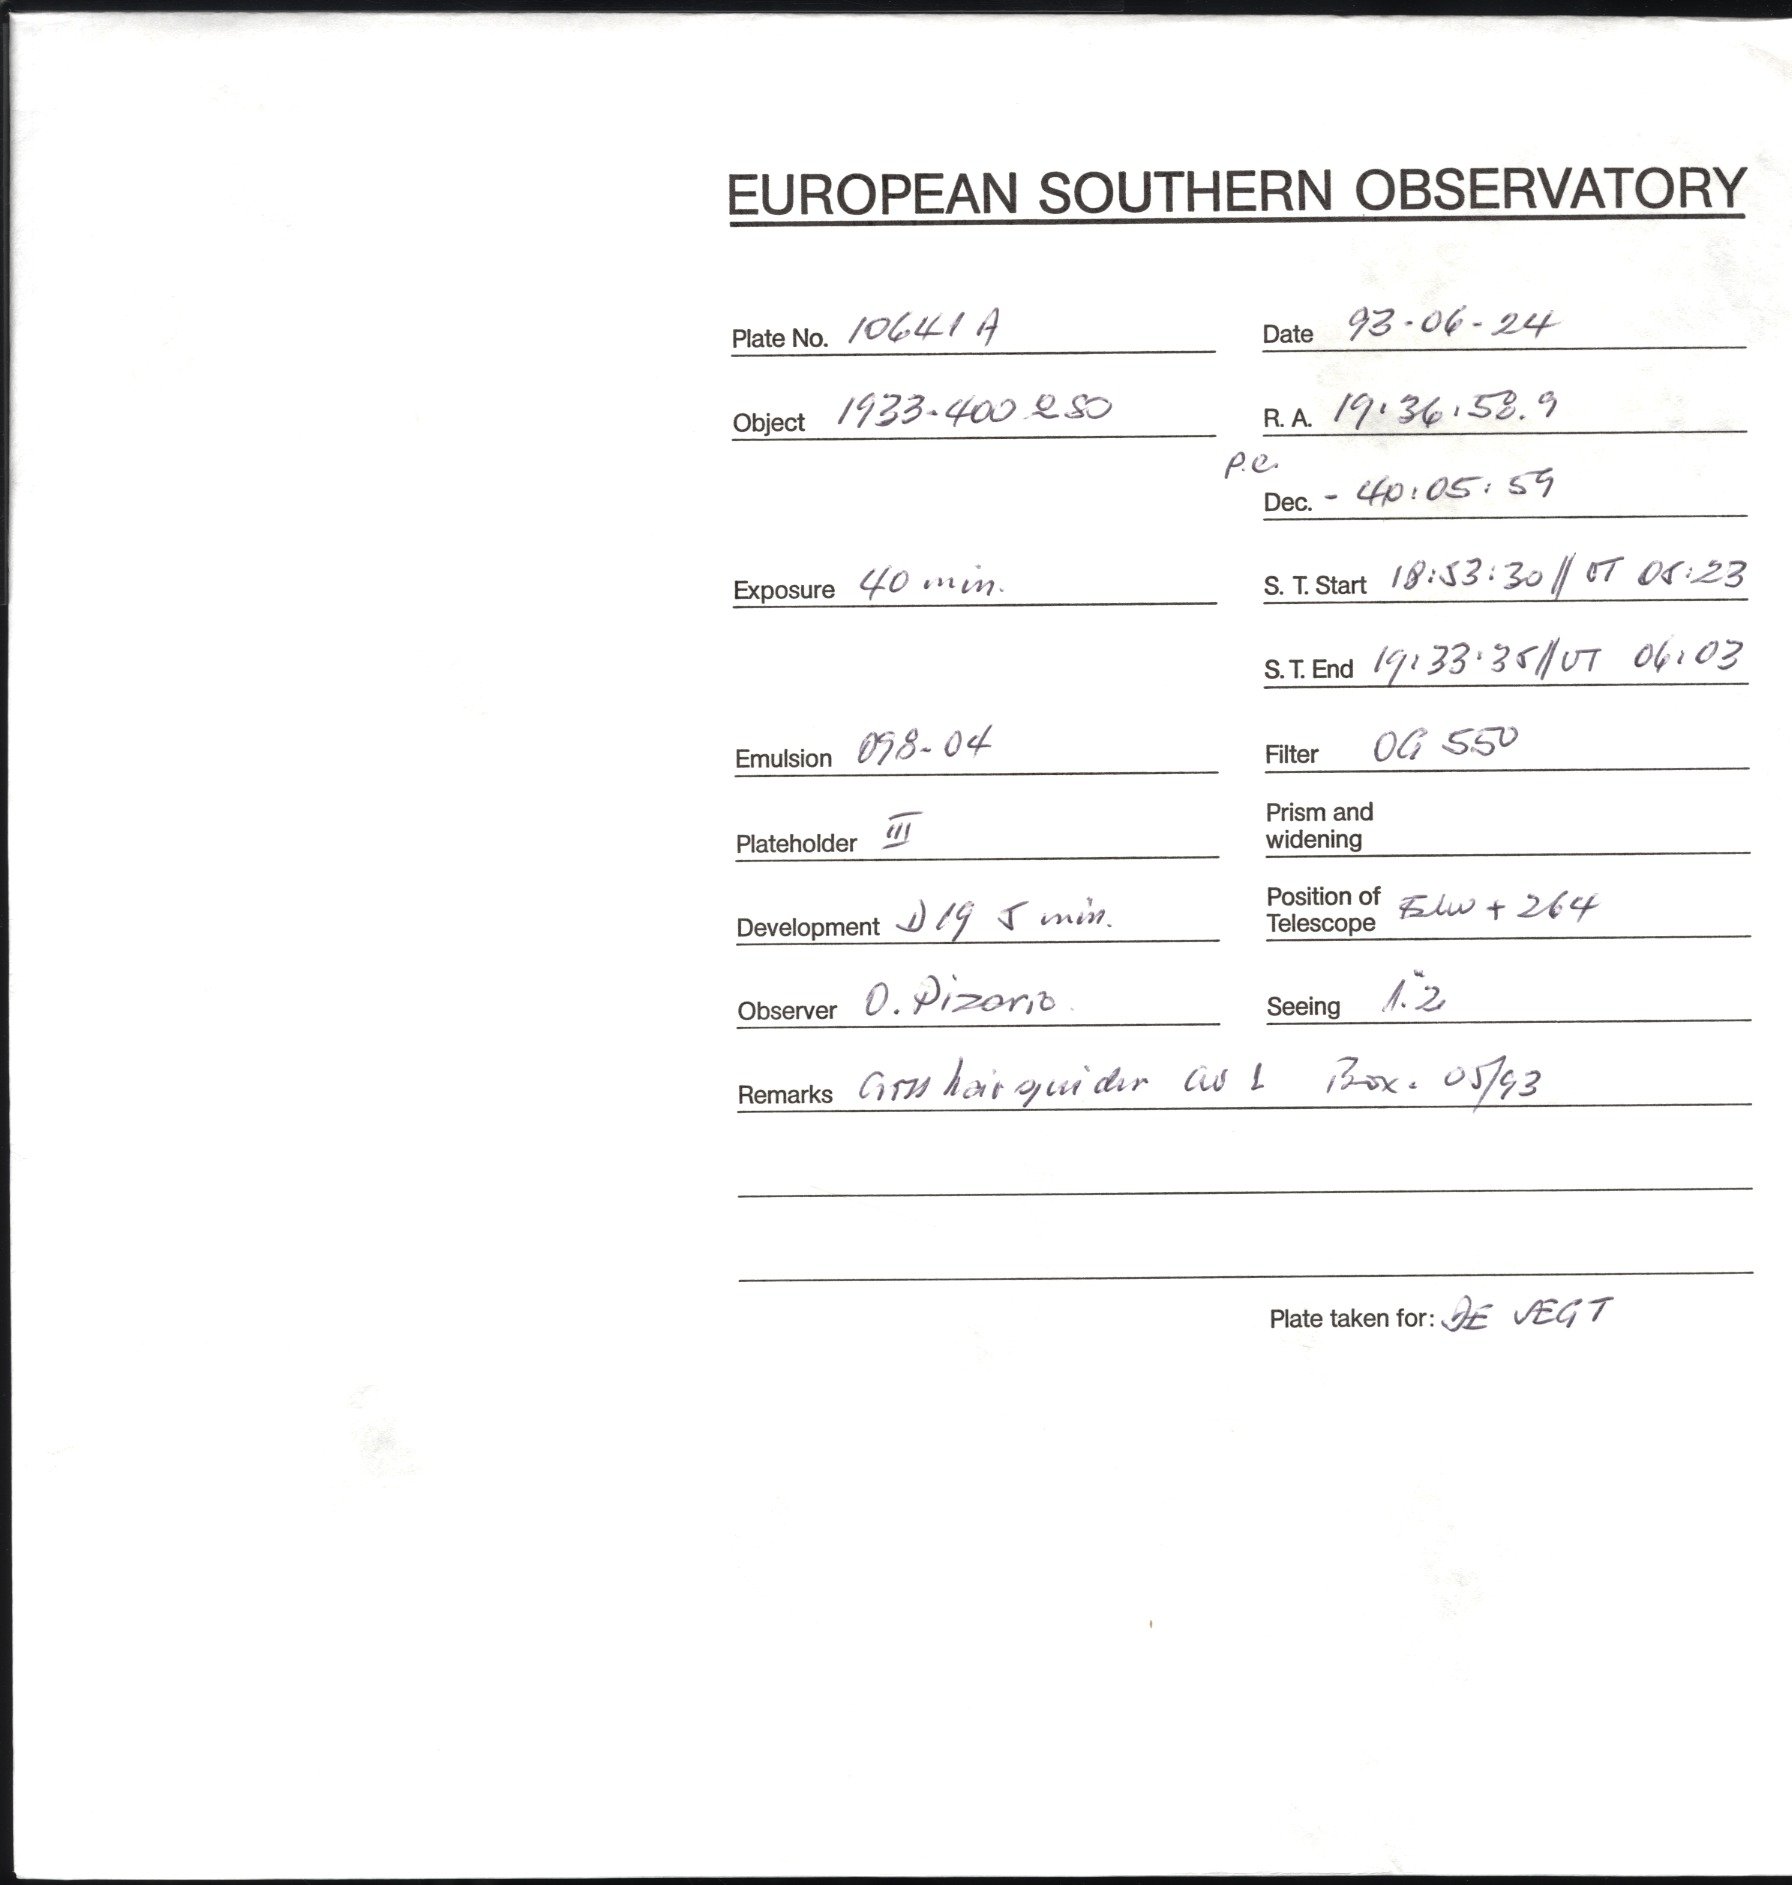 EUROPEAN SOUTHERN OBSERVATORY
Plate No. 10641 A
Date 93-06-24
Object 1933-400 QSO
R. A. 19:36:58.9
p.c.
Dec. - 40:05:59
Exposure 40 min.
S. T. Start 18:53:30 // UT 05:23
S. T. End 19:33:35 // UT 06:03
Emulsion 098-04
Filter OG 550
Plateholder III
Prism and
widening
Development D19 5 min.
Position of
Telescope + 264
Observer O. Pizarro
Seeing 1."2
Remarks Crosshair guider Box. 05/93
Plate taken for: DE VEGT